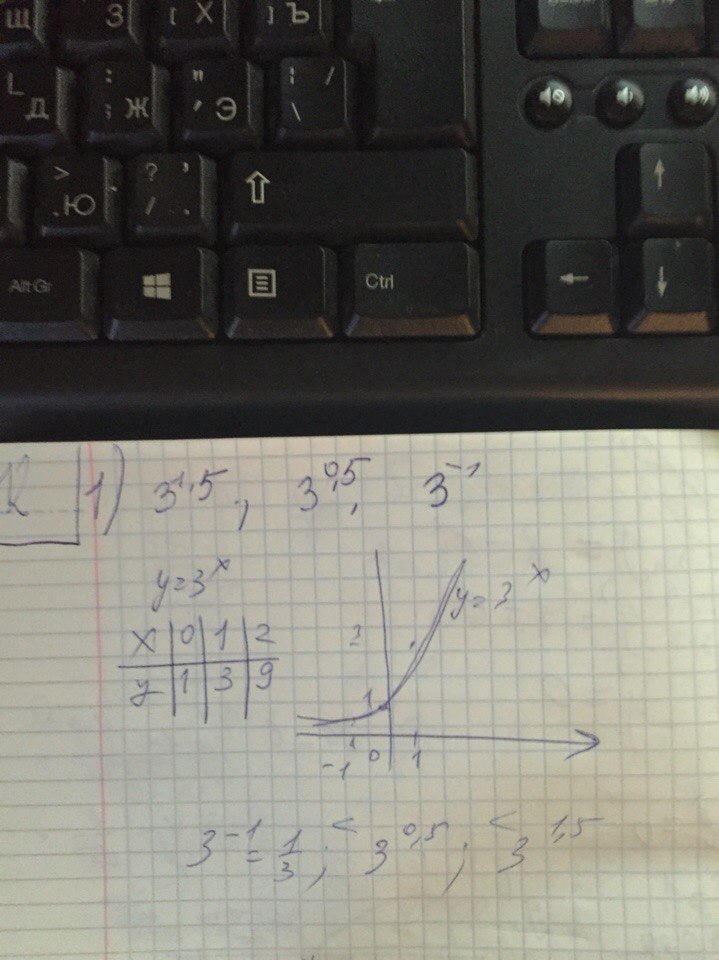 Щ З [ Х ] Ъ
L Д : ; Ж " ' Э | / \
> . Ю ? , / .
Alt Gr Ctrl
1) 3^1,5 , 3^0,5 , 3^-1
y=3^x
x 0 1 2
y 1 3 9
y=3^x
3
1
-1 0 1
3^-1 = 1/3 ; < 3^0,5 ; < 3^1,5